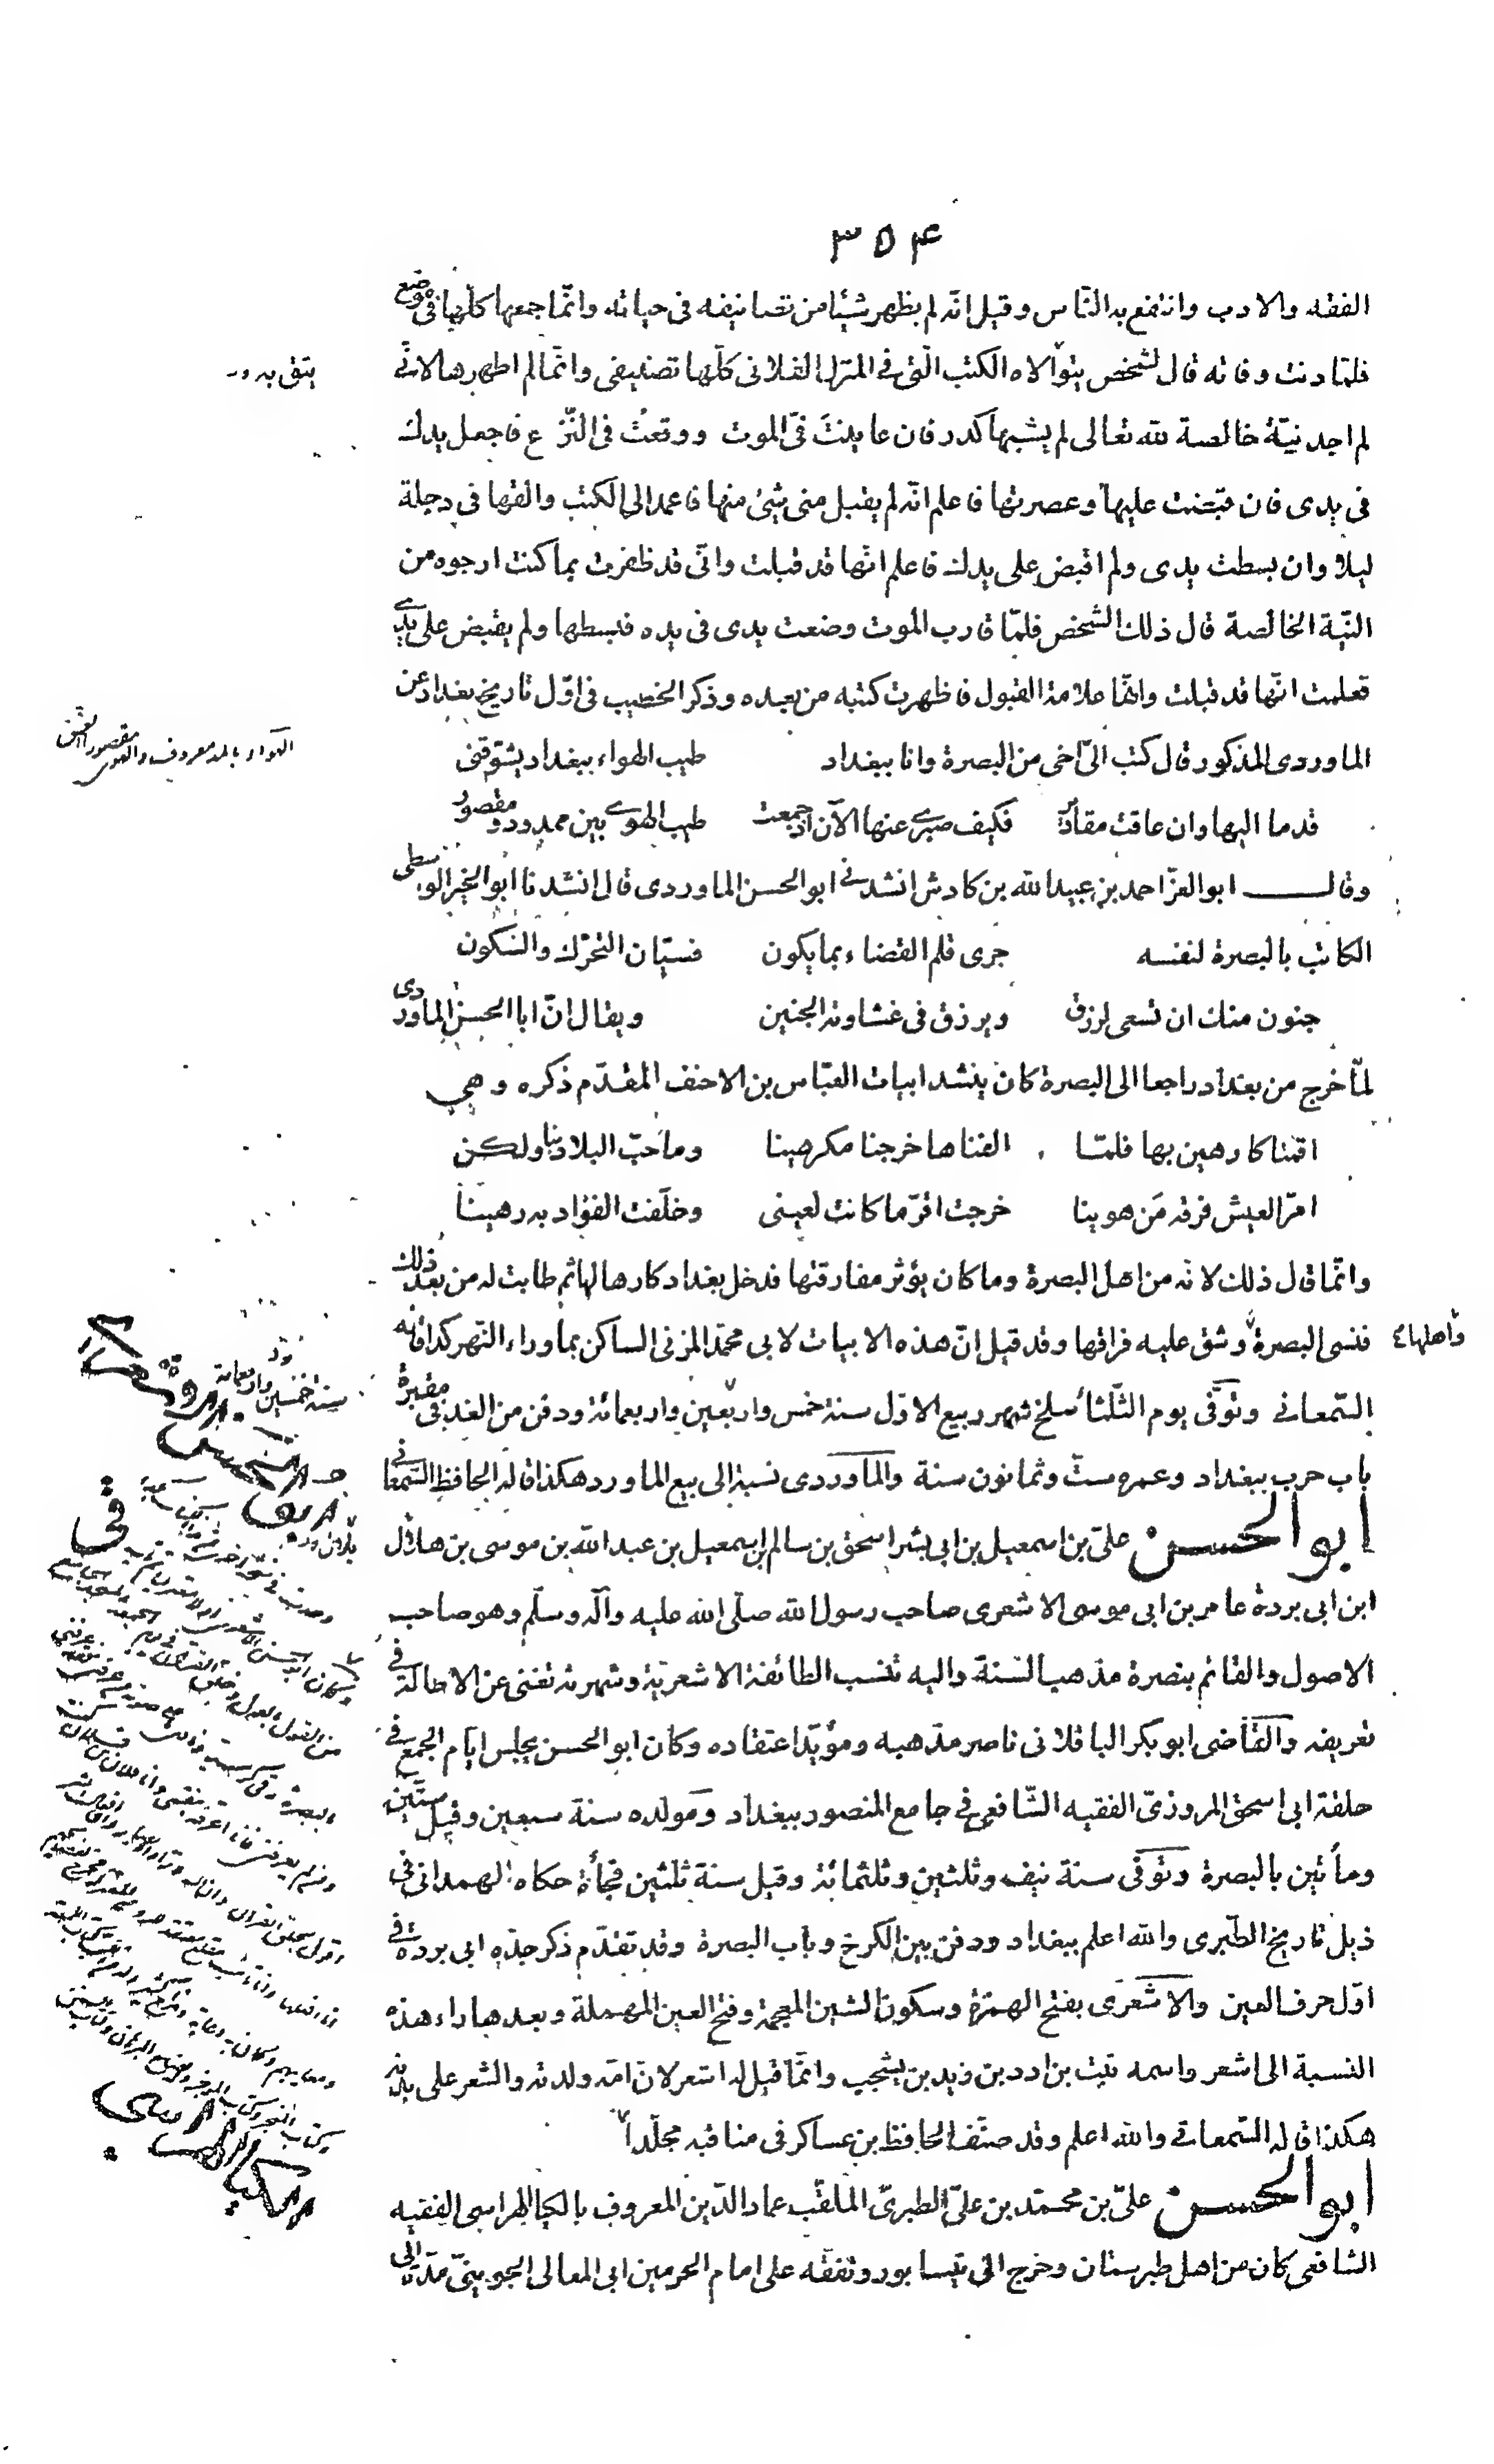 ۳۵۴
الفقه والادب وانتفع به النّاس وقيل انّه لم يظهر شيئا من تصانيفه فى حياته وانّما جمعها كلّها فى موضع
فلمّا دنت وفاته قال لشخص يتولاه الكتب الّتى فى المنزل الفلانى كلّها تصنيفى وانّما لم اظهرها لانّى
يثق به ور
لم اجد نيّة خالصة لله تعالى لم يشبها كدر فان عاينتَ فىّ الموت ووقعتُ فى النّزع فاجعل يدك
فى يدى فان قبضت عليها وعصرتها فاعلم انّه لم يقبل منى شئ منها فاعمد الى الكتب والقها فى دجلة
ليلا وان بسطت يدى ولم اقبض على يدك فاعلم انّها قد قبلت وانّى قد ظفرت بما كنت ارجوه من
النّية الخالصة قال ذلك الشخص فلمّا قارب الموت وضعت يدى فى يده فبسطها ولم يقبض على يدى
فعلمت انّها قد قبلت وانّها علامة القبول فاظهرت كتبه من بعده وذكر الخطيب فى اوّل تاريخ بغداد عن
الماوردى المذكور قال كتب الىّ اخى من البصرة وانا ببغداد طيب الهواء ببغداد يشوّقنى
الهواء بالمد معروف والهوى مقصور العشق
قدما اليها وان عاقت مقادير فكيف صبرى عنها الآن اذ جمعت طيب الهوى بين ممدود ومقصور
وقال ابو العزّ احمد بن عبيد الله بن كادش انشدنى ابو الحسن الماوردى قال انشدنا ابو الخير الواسطى
الكاتب بالبصرة لنفسه جرى قلم القضاء بما يكون فسيّان التحرّك والسّكون
جنون منك ان تسعى لرزق ويرزق فى غشاوته الجنين ويقال انّ ابا الحسن الماوردى
لمّا خرج من بغداد راجعا الى البصرة كان ينشد ابيات العبّاس بن الاحنف المقدّم ذكره وهى
اقمنا كارهين بها فلمّا الفناها خرجنا مكرهينا وما حبّ البلاد بنا ولكن
امرّ العيش فرقة مَن هوينا خرجت اقرّ ما كانت لعينى وخلّفت الفؤاد به رهينا
وانّما قال ذلك لانّه من اهل البصرة وما كان يؤثر مفارقتها فدخل بغداد كارها لها ثم طابت له من بعد ذلك
فنسى البصرة وشق عليه فراقها وقد قيل انّ هذه الابيات لابى محمّد المزنى الساكن بما وراء النّهر كذا قاله
واهلها
السّمعانى وتوفّى يوم الثّلثا سلخ شهر ربيع الاوّل سنة خمس واربعين واربعمائة ودفن من الغد فى مقبرة
سنة خمسين واربعمائة
باب حرب ببغداد وعمره ستّ وثمانون سنة والماوردى نسبة الى بيع الماورد هكذا قاله الحافظ السّمعانى
ابو الحسن علىّ بن اسمعيل بن ابى بشر اسحق بن سالم بن اسمعيل بن عبد الله بن موسى بن هلال
ابن ابى بردة عامر بن ابى موسى الاشعرى صاحب رسول الله صلّى الله عليه وآله وسلّم وهو صاحب
الاصول والقائم بنصرة مذهب السّنة واليه تنسب الطائفة الاشعريّة وشهرته تغنى عن الاطالة فى
تعريفه والقاضى ابو بكر الباقلانى ناصر مذهبه ومؤيّد اعتقاده وكان ابو الحسن يجلس ايّام الجمع فى
حلقة ابى اسحق المروذىّ الفقيه الشّافعى فى جامع المنصور ببغداد ومولده سنة سبعين وقيل ستّين
ومأتين بالبصرة وتوفّى سنة نيف وثلثين وثلثمائة وقيل سنة ثلثين فجأة حكاه الهمدانى فى
ذيل تاريخ الطّبرى والله اعلم ببغداد ودفن بين الكرخ وباب البصرة وقد تقدّم ذكر جدّه ابى بردة فى
اوّل حرف العين والاشعرى بفتح الهمزة وسكون الشين المعجمة وفتح العين المهملة وبعدها راء هذه
النسبة الى اشعر واسمه نبت بن ادد بن زيد بن يشجب وانّما قيل له اشعر لانّ امّه ولدته والشعر على بدنه
هكذا قاله السّمعانى والله اعلم وقد صنّف الحافظ بن عساكر فى مناقبه مجلّدا
ابو الحسن علىّ بن محمّد بن علىّ الطبرىّ الملقّب عماد الدّين المعروف بالكيا الهراسى الفقيه
الشافعى كان من اهل طبرستان وخرج الى نيسابور وتفقّه على امام الحرمين ابى المعالى الجوينىّ مدّة الى
ابو الحسن الاشعرى
الكيا الهراسى